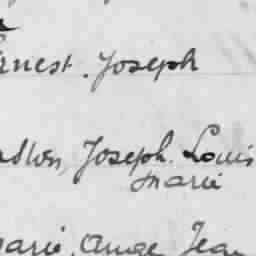 rnest, Joseph
Joseph, Louis
Marie
arie, Ange Jean